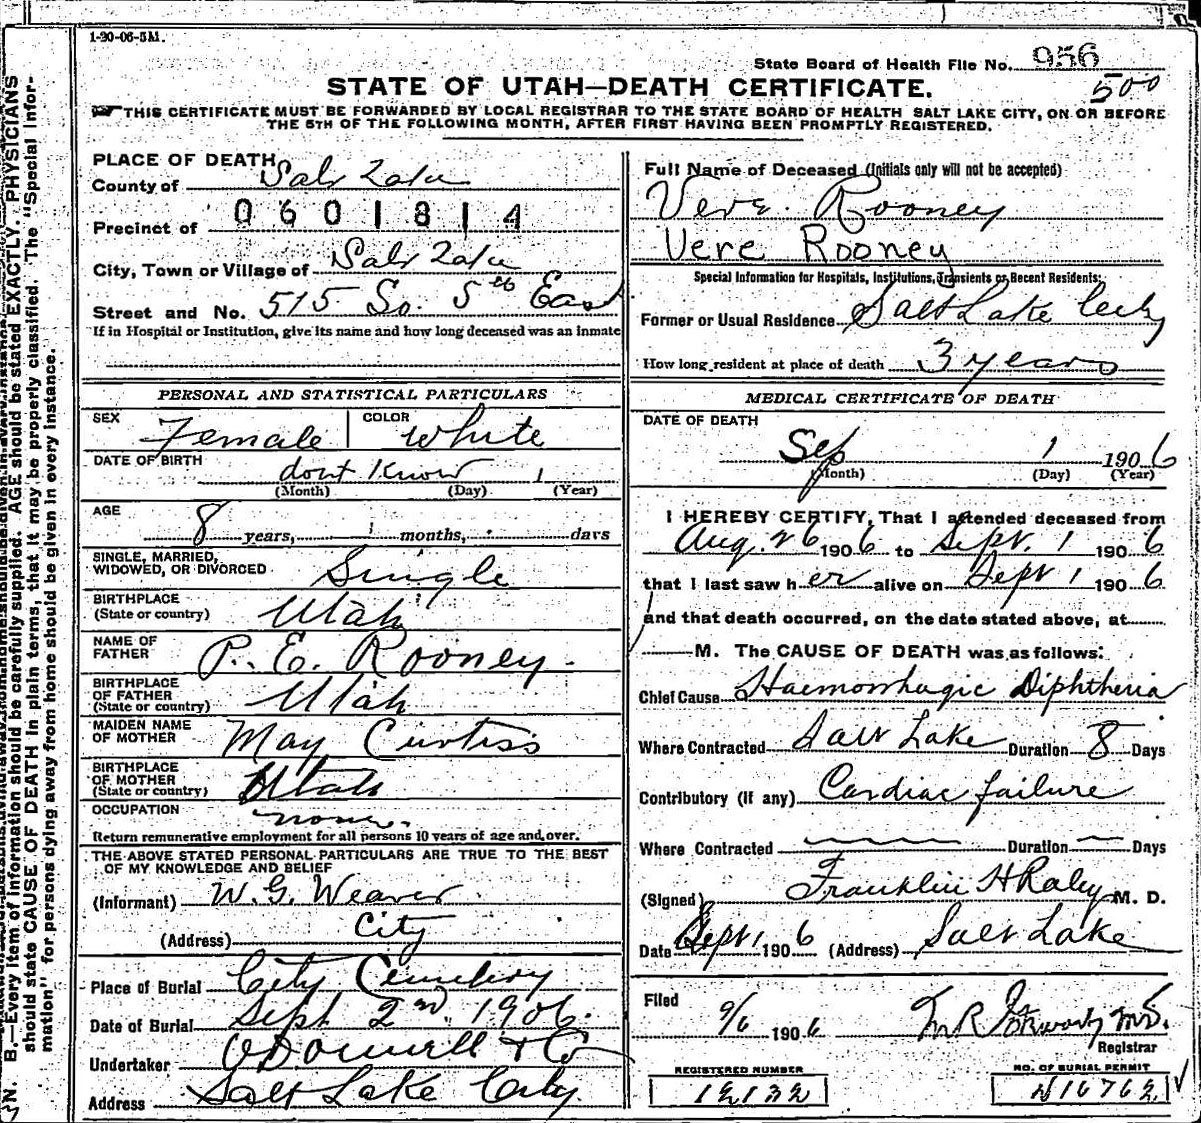 1-20-06-5M.
State Board of Health File No. 956
500
STATE OF UTAH—DEATH CERTIFICATE.
THIS CERTIFICATE MUST BE FORWARDED BY LOCAL REGISTRAR TO THE STATE BOARD OF HEALTH SALT LAKE CITY, ON OR BEFORE
THE 5TH OF THE FOLLOWING MONTH, AFTER FIRST HAVING BEEN PROMPTLY REGISTERED.
PLACE OF DEATH
County of Salt Lake
Precinct of 0601814
City, Town or Village of Salt Lake
Street and No. 515 So. 5th East
If in Hospital or Institution, give its name and how long deceased was an inmate
Full Name of Deceased (Initials only will not be accepted)
Vere Rooney
Vere Rooney
Special Information for Hospitals, Institutions, Transients or Recent Residents:
Former or Usual Residence Salt Lake City
How long resident at place of death 3 years
PERSONAL AND STATISTICAL PARTICULARS
SEX Female COLOR White
DATE OF BIRTH dont Know 1
(Month) (Day) (Year)
AGE
8 years, months, days
SINGLE, MARRIED,
WIDOWED, OR DIVORCED Single
BIRTHPLACE
(State or country) Utah
NAME OF
FATHER P. E. Rooney.
BIRTHPLACE
OF FATHER
(State or country) Utah
MAIDEN NAME
OF MOTHER May Curtiss
BIRTHPLACE
OF MOTHER
(State or country) Utah
OCCUPATION none.
Return remunerative employment for all persons 10 years of age and over.
THE ABOVE STATED PERSONAL PARTICULARS ARE TRUE TO THE BEST
OF MY KNOWLEDGE AND BELIEF
(Informant) W. G. Weaver
(Address) City
Place of Burial City Cemetery
Date of Burial Sept 2nd, 1906.
Undertaker O'Donnell & Co
Address Salt Lake City.
MEDICAL CERTIFICATE OF DEATH
DATE OF DEATH
Sep 1 1906
(Month) (Day) (Year)
I HEREBY CERTIFY, That I attended deceased from
Aug. 26 1906 to Sept. 1 1906
that I last saw her alive on Sept 1 1906
and that death occurred, on the date stated above, at
M. The CAUSE OF DEATH was as follows:
Chief Cause Haemorrhagic Diphtheria
Where Contracted Salt Lake Duration 8 Days
Contributory (if any) Cardiac failure
Where Contracted Duration Days
(Signed) Franklin H Raley M. D.
Date Sept 1 1906 (Address) Salt Lake
Filed 9/6 1906
Registrar
REGISTERED NUMBER
12132
NO. OF BURIAL PERMIT
N16762
N. B.—Every item of information should be carefully supplied. AGE should be stated EXACTLY. PHYSICIANS
should state CAUSE OF DEATH in plain terms, that it may be properly classified. The "Special Infor-
mation" for persons dying away from home should be given in every instance.